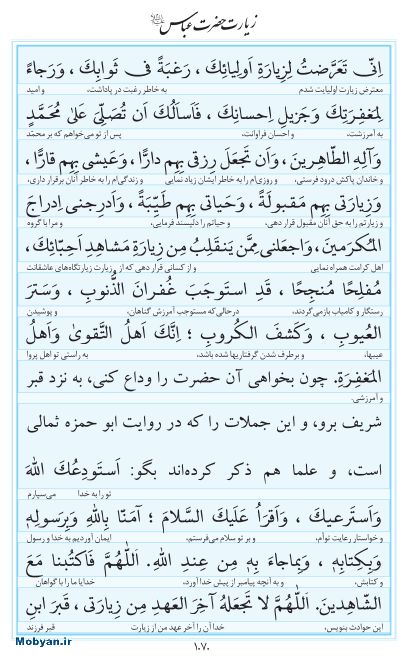 زیارت حضرت عباس
اِنّی تَعَرَّضتُ لِزِیارَةِ اَولِیائِکَ ، رَغبَةً فی ثَوابِکَ ، وَرَجاءً
معترض زیارت اولیایت شدم به خاطر رغبت در پاداشت، و امید
لِمَغفِرَتِکَ وَجَزیلِ اِحسانِکَ ، فَاَسأَلُکَ اَن تُصَلِّیَ عَلیٰ مُحَمَّدٍ
به آمرزشت، و احسان فراوانت، پس از تو می‌خواهم که بر محمّد
وَآلِهِ الطّاهِرینَ، وَاَن تَجعَلَ رِزقی بِهِم دارًّا ، وَعَیشی بِهِم قارًّا ،
و خاندان پاکش درود فرستی، و روزی‌ام را به خاطر ایشان زیاد نمایی و زندگی‌ام را به خاطر آنان برقرار داری،
وَزِیارَتی بِهِم مَقبولَةً ، وَحَیاتی بِهِم طَیِّبَةً ، وَاَدرِجنی اِدراجَ
و زیارتم را به حق آنان مقبول قرار دهی، و حیاتم را دلپسند فرمایی، و مرا با گروه
المُکرَمینَ، وَاجعَلنی مِمَّن یَنقَلِبُ مِن زِیارَةِ مَشاهِدِ اَحِبّائِکَ،
اهل کرامت همراه نمایی و از کسانی قرار دهی که از زیارت زیارتگاه‌های عاشقانت
مُفلِحًا مُنجِحًا ، قَدِ استَوجَبَ غُفرانَ الذُّنوبِ ، وَسَترَ
رستگار و کامیاب بازمی‌گردند، درحالی‌که مستوجب آمرزش گناهان، و پوشیدن
العُیوبِ ، وَکَشفَ الکُروبِ ؛ اِنَّکَ اَهلُ التَّقویٰ وَاَهلُ
عیبها، و برطرف شدن گرفتاریها شده باشد، به راستی تو اهل پروا
المَغفِرَةِ. چون بخواهی آن حضرت را وداع کنی، به نزد قبر
و آمرزشی.
شریف برو، و این جملات را که در روایت ابو حمزه ثمالی
است، و علما هم ذکر کرده‌اند بگو: اَستَودِعُکَ اللهَ
تو را به خدا می‌سپارم
وَاَستَرعیکَ ، وَاَقرَأُ عَلَیکَ السَّلامَ ؛ آمَنّا بِاللهِ وَبِرَسولِهِ
و خواستار رعایت توأم، و بر تو سلام می‌فرستم، ایمان آوردیم به خدا و رسول
وَبِکِتابِهِ ، وَبِماجاءَ بِهِ مِن عِندِ اللهِ. اَللّٰهُمَّ فَاکتُبنا مَعَ
و کتابش، و به آنچه پیامبر از پیش خدا آورد، خدایا ما را با گواهان
الشّاهِدینَ. اَللّٰهُمَّ لا تَجعَلهُ آخِرَ العَهدِ مِن زِیارَتی ، قَبرَ ابنِ
این حوادث بنویس، خدا آن را آخر عهد من از زیارت قبر فرزند
Mobyan.ir
۱۰۷۰